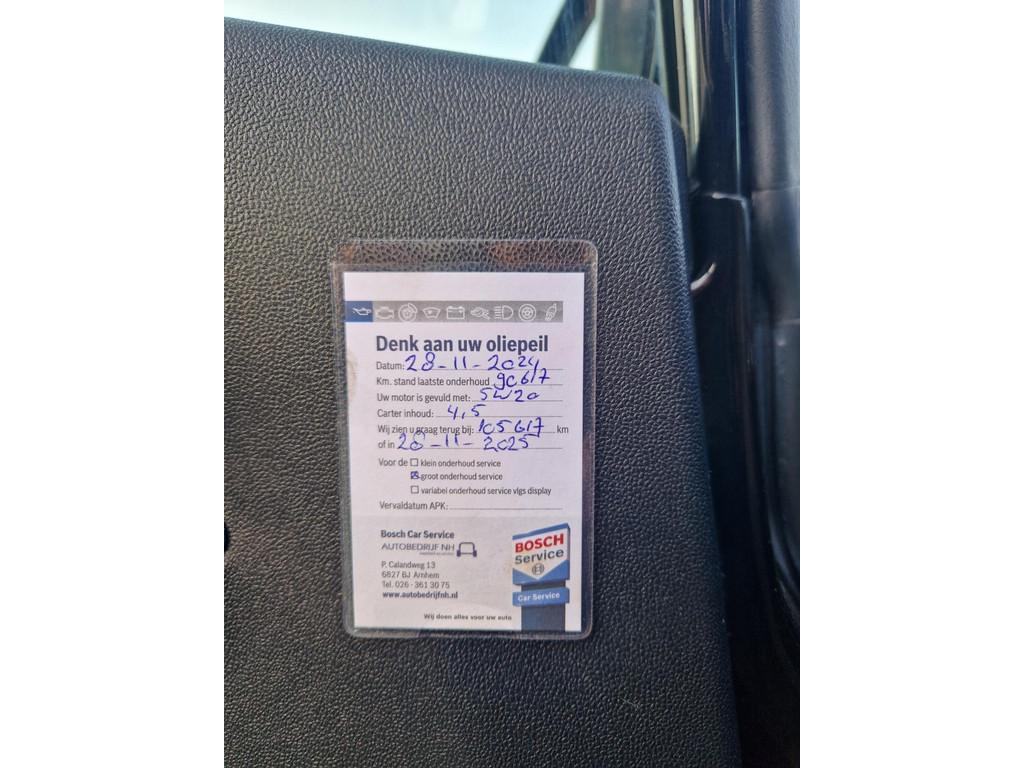 Denk aan uw oliepeil
Datum: 28-11-2024
Km. stand laatste onderhoud 90617
Uw motor is gevuld met: 5W20
Carter inhoud: 4,5
Wij zien u graag terug bij: 105617 km
of in 28-11-2025
Voor de klein onderhoud service
groot onderhoud service
variabel onderhoud service vlgs display
Vervaldatum APK:
Bosch Car Service
AUTOBEDRIJF NH
P. Calandweg 13
6827 BJ Arnhem
Tel. 026 - 361 30 75
www.autobedrijfnh.nl
BOSCH
Service
Car Service
Wij doen alles voor uw auto